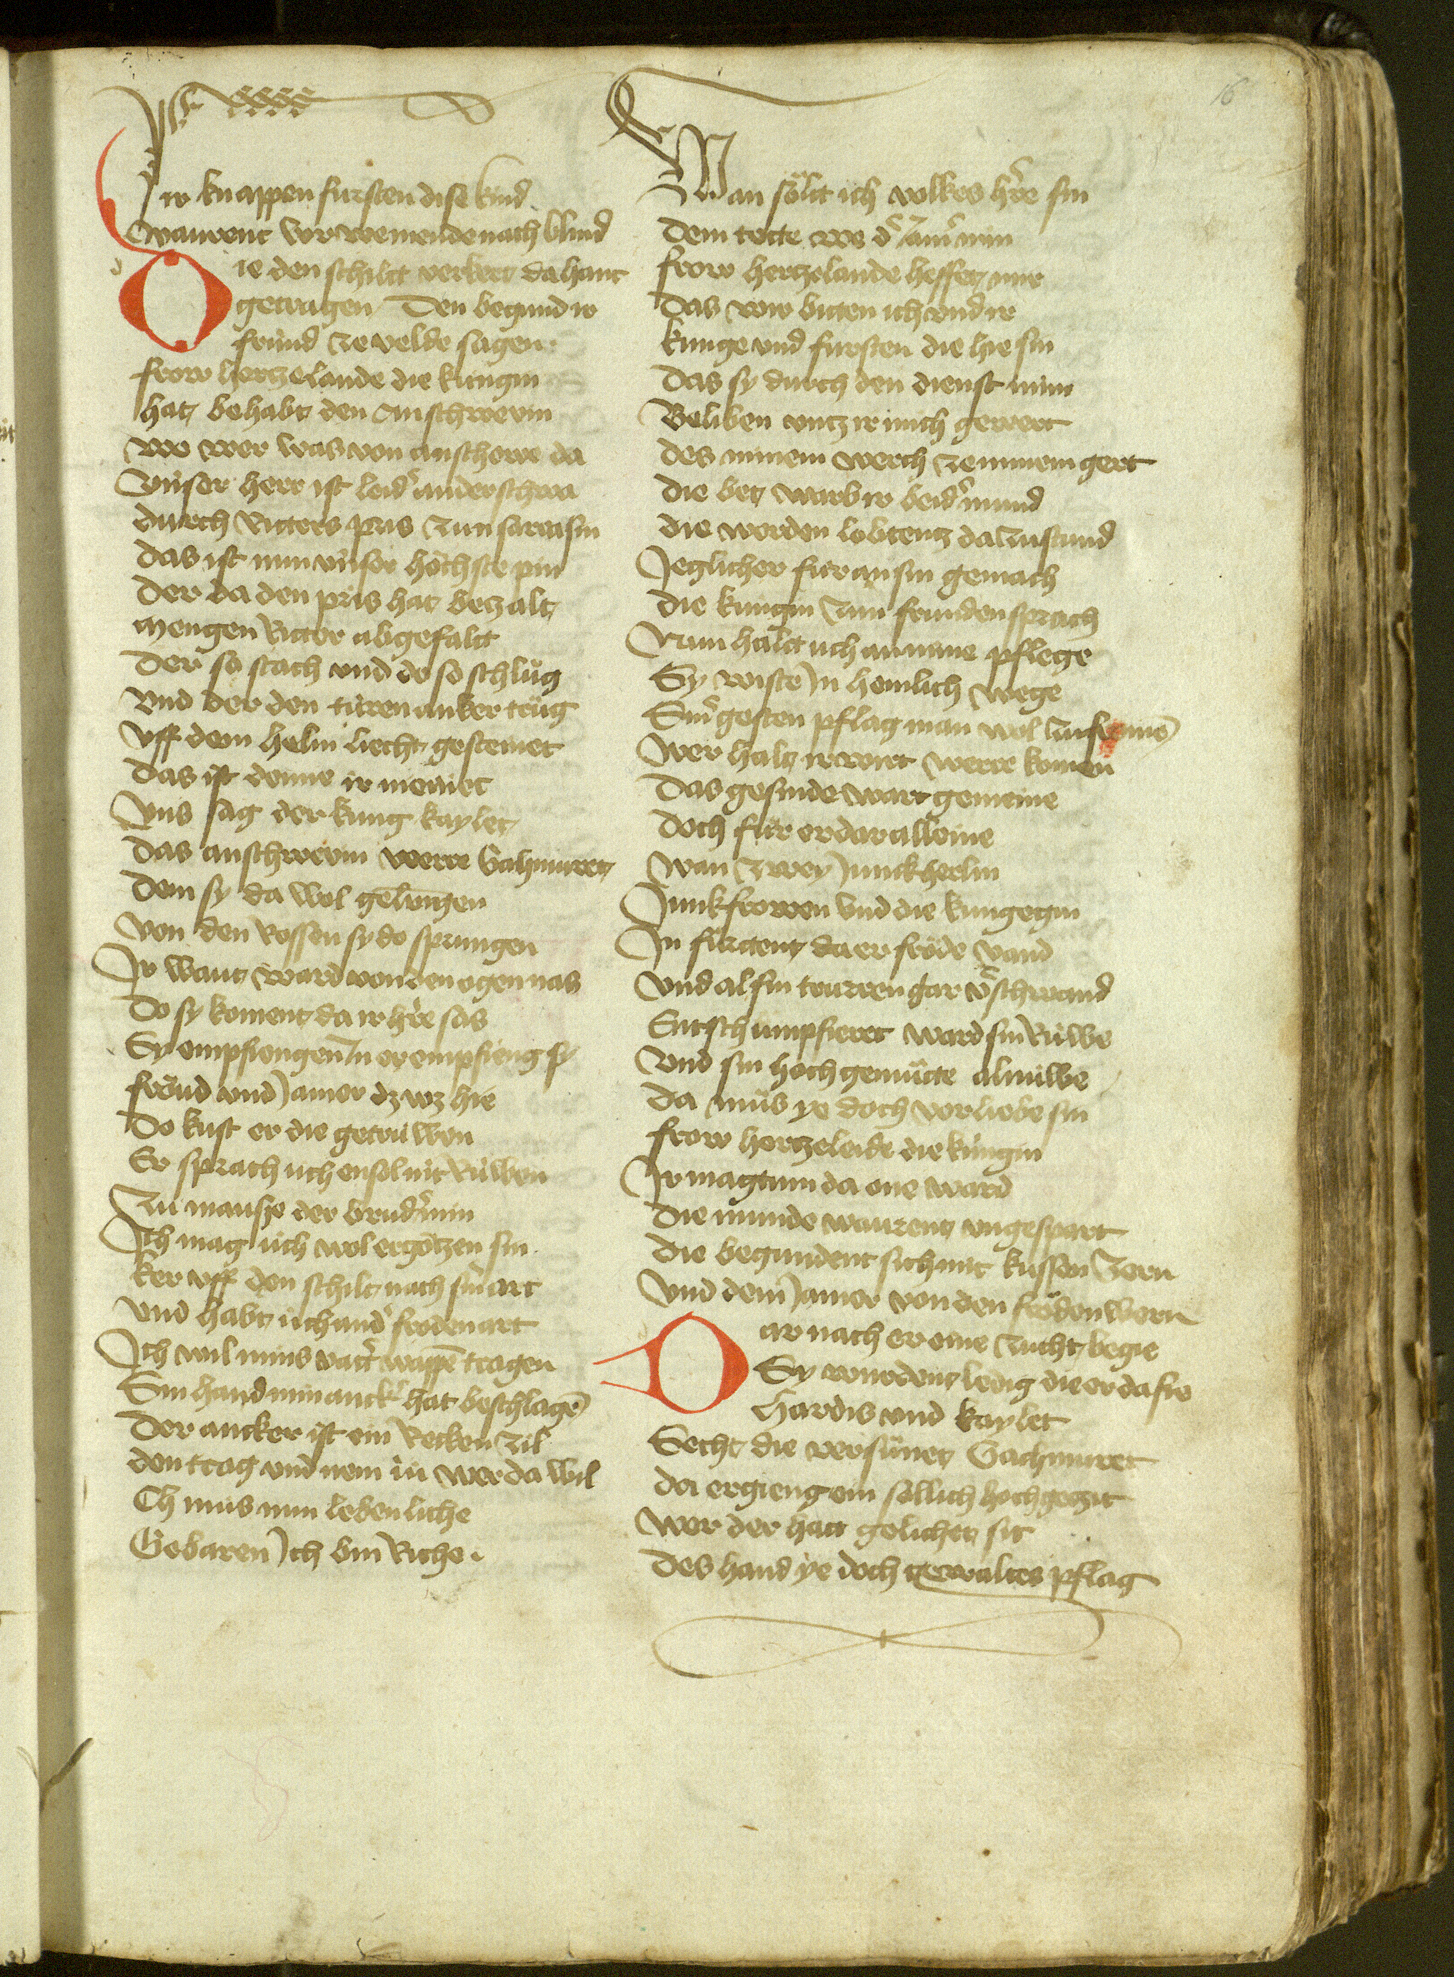 16
ir knappen fürsten dise kind
Waurent vor wemende nach blind
ie den schilt verkert da hant
getragen Den begund ir
fründ ze velde sagen
frow hertzelaude die küngin
hat behabt den Anschwevin
wo wer was von anschowe da
Vnser herr ist leid̾ anderschwa
durch Ritters pris zun sarrasin
das ist nun vnser höchste pin
Der da den pris hat bezalt
Mengen Ritter abgefalt
Der so stach vnd do so schlůg
vnd der den türen anker trůg
vff dem helm liecht gesteinet
das ist denne ir meinet
Vns sag der küng kaylet
das anschwevin werre Gahmuret
dem sy da wol gelungen
von den rossen sy do sprungen
Ir want ward von den ogen nas
Do sy koment da ir h̾re sas
Sy empfiengen In er empfieng sy
fröud vnd Jamer dz wz hie
Do kust er die getrüwen
Er sprach uch ensol nit Rüwen
Zu mausse der brud̾ min
Ich mag üch wol ergötzen sin
ker vff den schilt nach sin̾ art
vnd habt üch and̾ fröden art
Ich wil mins vatt̾ wappē tragen
Sin hand min anck̾ hat beschlagē
Der ancker ist ein Recken zil
den trag vnd nem in wer da wil
Ch mus nun lebenliche
Gebaren Ich bin Riche
Wan sölt ich volkes h̾re sin
Dem tette we d̾ Jam̾ min
frow hertzelaude helfet mir
das wir bitten ich vnd ir
künge vnd fursten die hie sin
das sy durch den dienst min
Beliben vntz ir mich gewert
des minem werch ze minem gert
die bet warb ir beid̾ mund
die werden lobtentz da zustund
Jeglicher für an sin gemach
die küngin zun frunden sprach
Nun halt uch an mine pflege
Sy wiste In heimlich wege
Sin̾ gesten pflag man wol
Wer halt ir wirt werre komen
das gesinde wart gemeine
doch für er dar alleine
wan zwey Junckherlin
Junkfrowen vnd die küngegin
In fürttent da er fröde vand
vnd al sin trurren gar v̾schwand
Entschumpfieret ward sin Rüwe
vnd sin hoch gemütte alnüwe
da müs ye doch vor liebe sin
frow hertzeleide die küngin
Ir magtum da one ward
die munde waurent vngespart
die begundent sich mit küssen zern
vnd dem Jamer von den fröden wern
ar nach er eine zucht begie
Sy wurdent ledig die er da fie
Hardis vnd kaylet
Secht die versünet Gachmuret
da ergieng ein söllich hochgezit
wer der hatt gelichet sit
Des hand ye doch gewaltes pflag